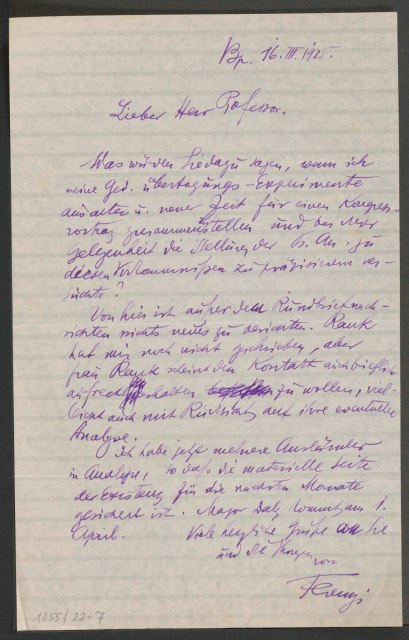 Bp. 16. III. 1925.
Lieber Herr Professor.
Was würden Sie dazu sagen, wenn ich
meine Ged. übertragungs-Experimente
aus alter u. neuer Zeit für einen Kongress-
vortrag zusammenstellen und bei dieser
Gelegenheit die Stellung der Ps. An. zu
diesen Vorkommnissen zu präzisieren ver-
suchte?
Von hier ist außer den Rundbriefnach-
richten nichts neues zu berichten. Rank
hat mir noch nicht geschrieben, aber
Frau Rank scheint den Kontakt auch brieflich
aufrecht erhalten zu wollen, viel-
leicht auch mit Rücksicht auf ihre eventuelle
Analyse.
Ich habe jetzt mehrere Ausländer
in Analyse, so daß die materielle Seite
der Existenz für die nächsten Monate
gesichert ist. Major Daly kommt am 1.
April. Viele herzliche Grüße an Sie
und die Ihrigen von
Ferenczi
1055/22-7